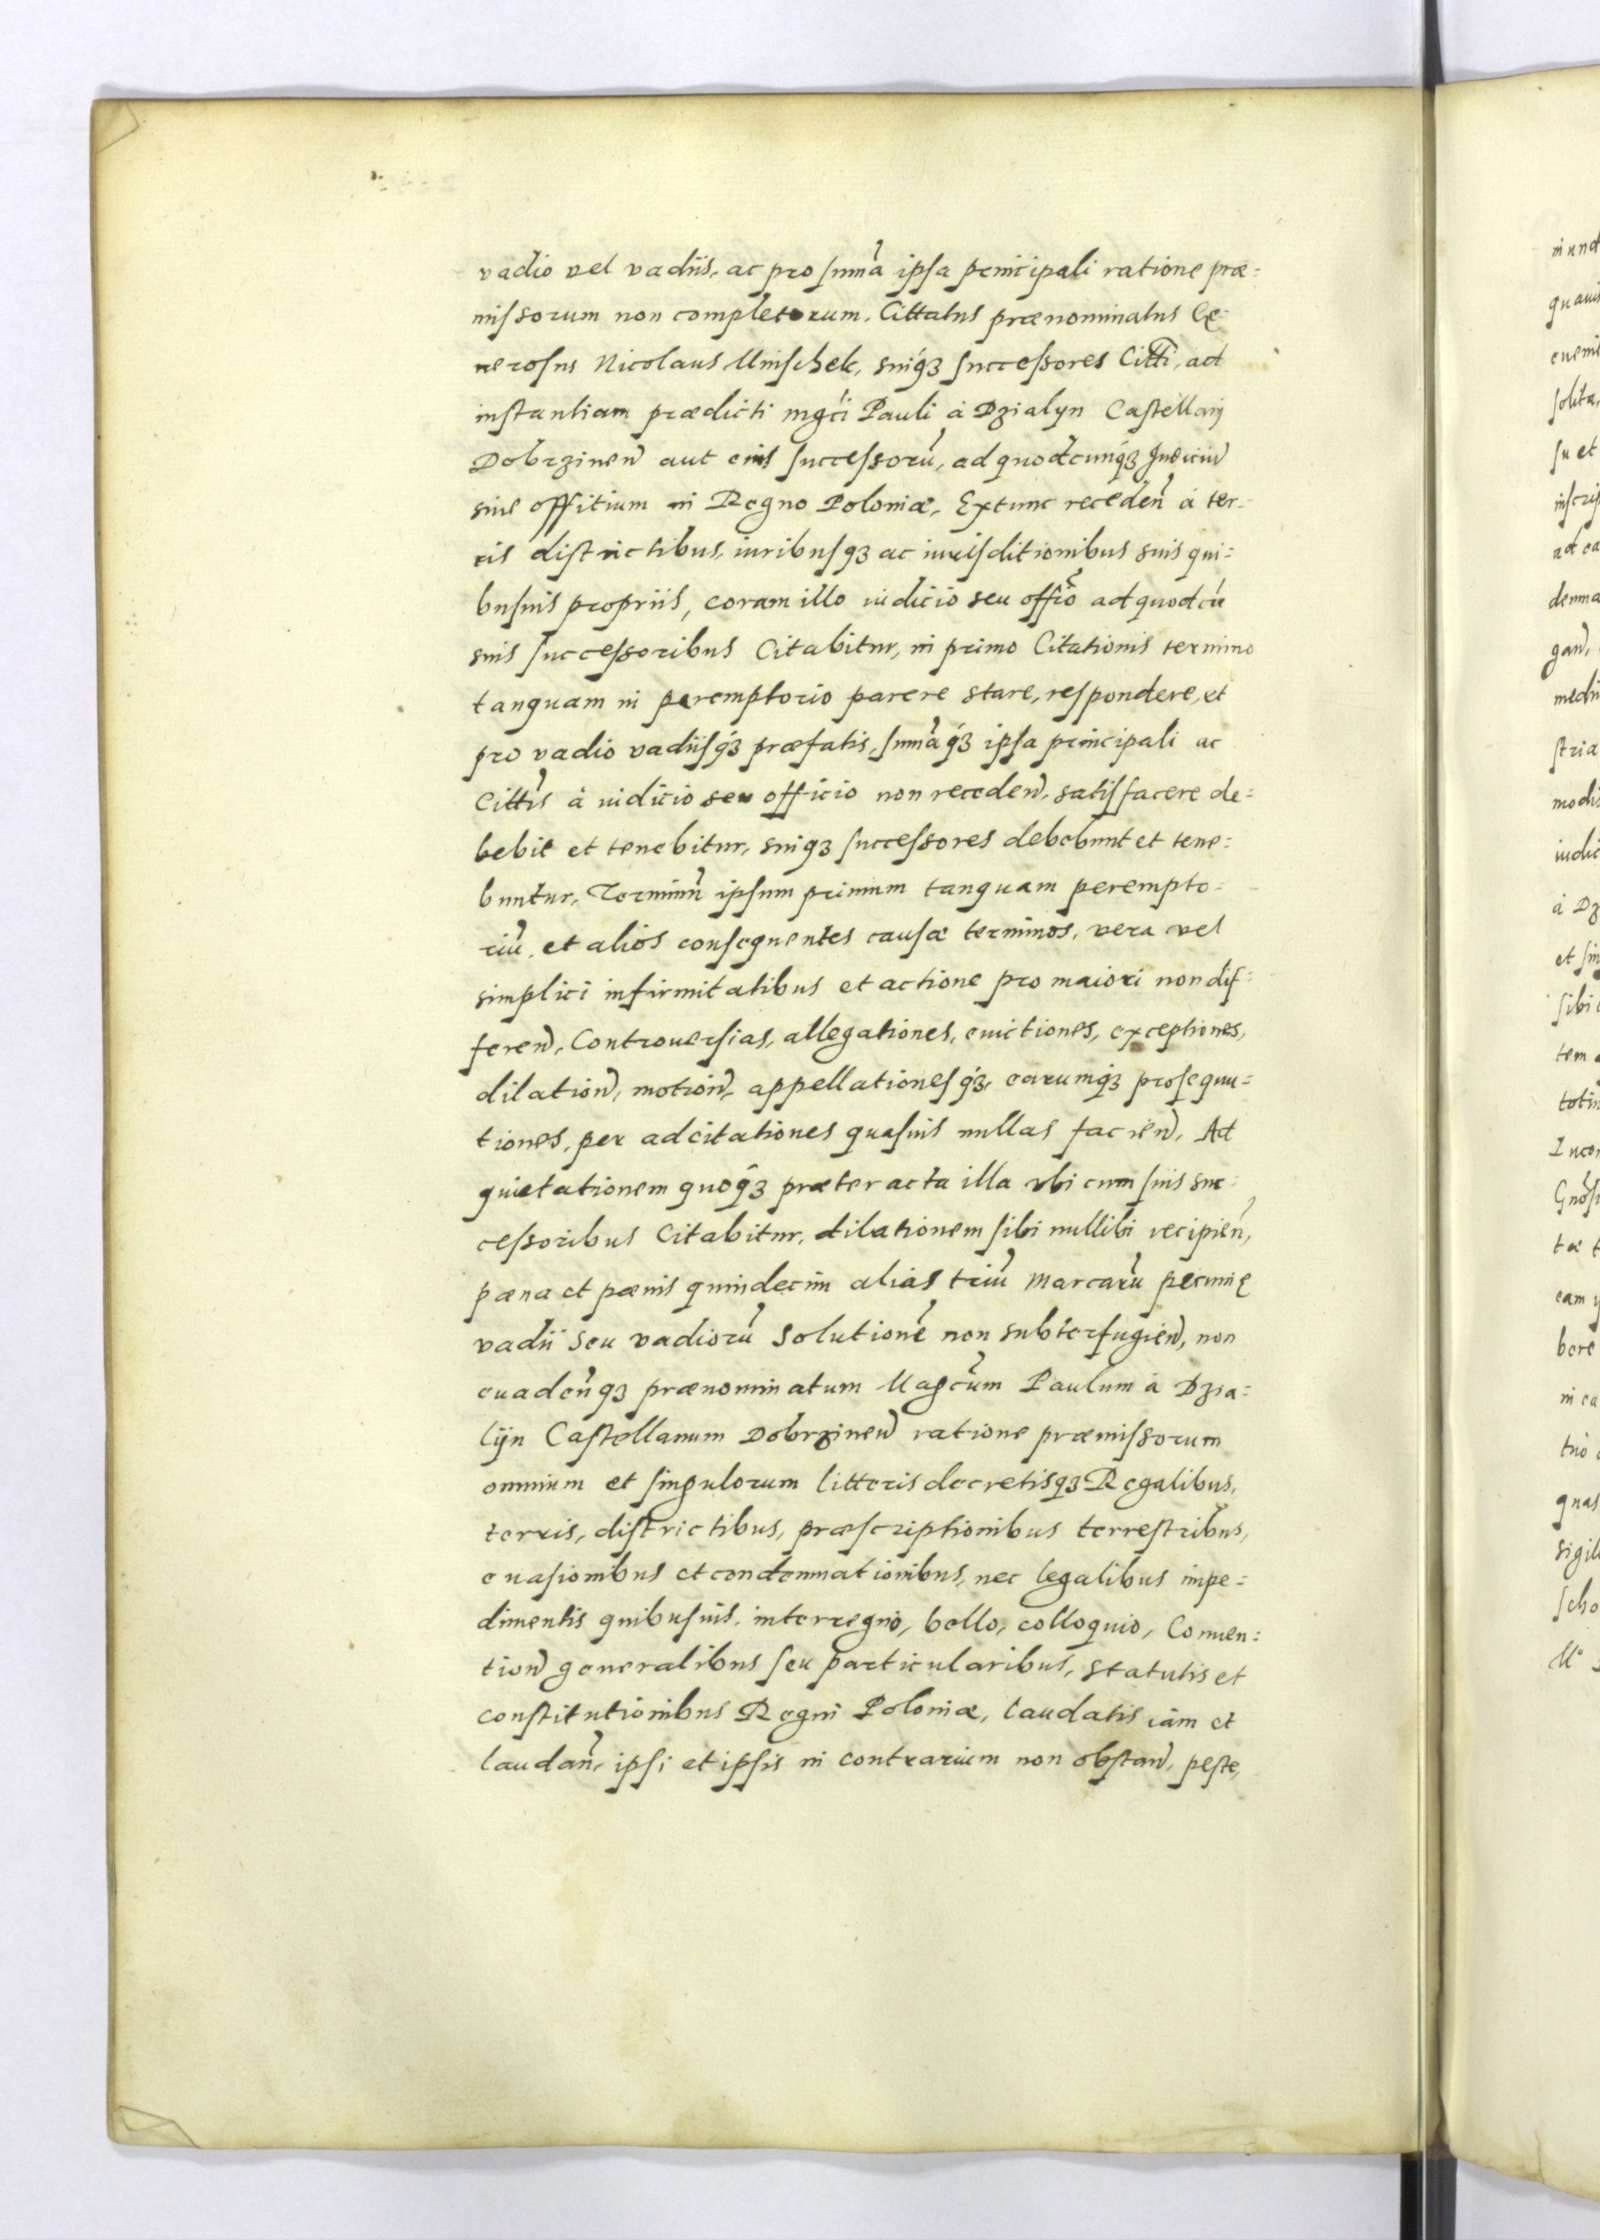 vadio vel vadiis, ac pro summa ipsa principali ratione præ=
missorum non completorum. Cittatus prænominatus Ge-
nerosus Nicolaus Mnischek, suiq3 successores Citti, ad
instantiam prædicti mgci Pauli à Dzialyn Castellanj
Dobrzinen aut eius successoru, ad quodcunq3 Judiciu
siue offitium in Regno Poloniæ, Extunc receden à ter-
ris districtibus, iuribusq3 ac iurisditionibus suis qui=
busuis propriis, coram illo iudicio seu offio ad quod cu
suis successoribus Citabitur, in primo Citationis termino
tanquam in peremptorio parere stare, respondere, et
pro vadio vadiisq3 præfatis, summaq3 ipsa principali ac
Cittis à iudicio seu officio non receden, satisfacere de=
bebit et tenebitur, suiq3 successores debebunt et tene=
buntur, Terminu ipsum primum tanquam perempto=
riu, et alios consequentes causæ terminos, vera vel
simplici infirmitatibus et actione pro maiori non dif=
feren, Controuersias, allegationes, euictiones, exceptiones,
dilation, motion, appellationesq3, earumq3 prosequu=
tiones, per adcitationes quasuis nullas facien, Ad
quietationem quoq3 præter acta illa vbi cum suis suc=
cessoribus Citabitur, dilationem sibi nullibi recipien,
pæna et pænis quindecim alias triu Marcaru pecunię
vadii seu vadioru solutione non subterfugien, non
euadenq3 prænominatum Magcum Paulum à Dzia=
lijn Castellanum Dobrzinen ratione præmissorum
omnium et singulorum litteris decretisq3 Regalibus,
terris, districtibus, præscriptionibus terrestribus,
euasionibus et condemnationibus, nec legalibus impe=
dimentis quibusuis, interregno, bello, colloquio, Conuen=
tion generalibus seu particularibus, statutis et
constitutionibus Regni Poloniæ, laudatis iam et
laudan, ipsi et ipsis in contrarium non obstan, peste,